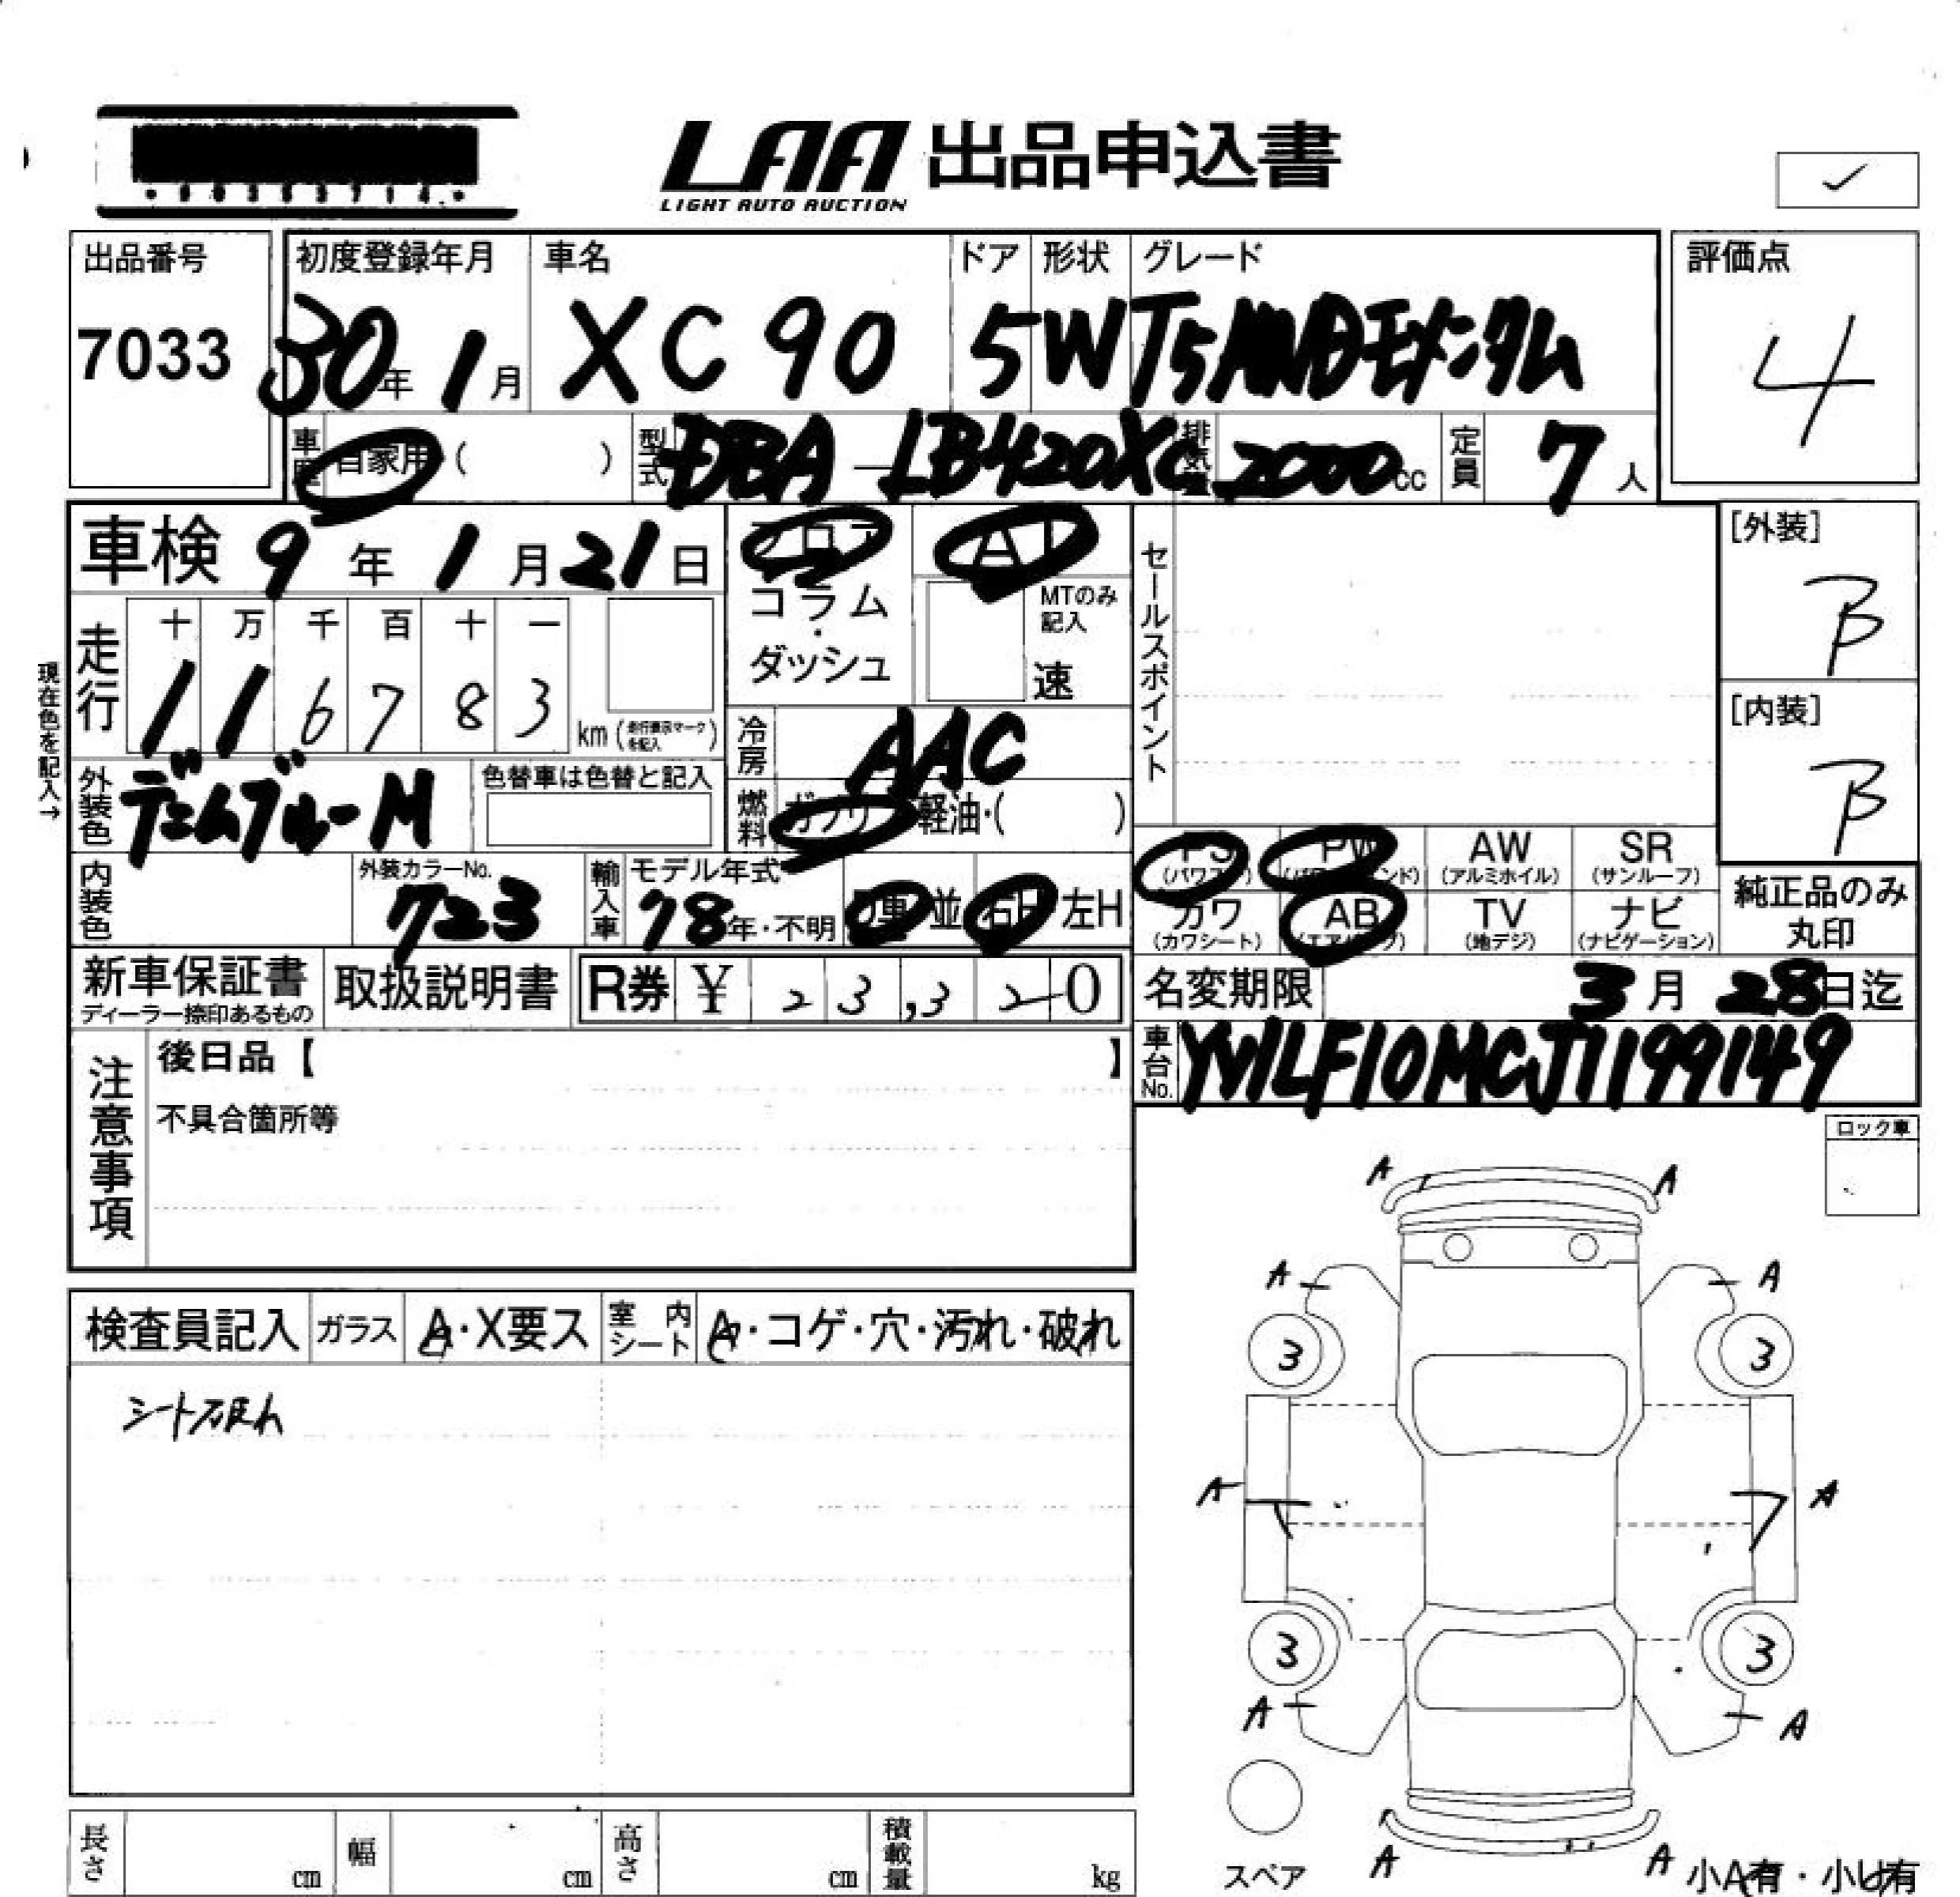 LAA 出品申込書
LIGHT AUTO AUCTION
出品番号 7033
初度登録年月 30年 1月
車名 XC90
ドア 5
形状 W
グレード T5 AWD モメンタム
評価点 4
車歴 自家用 ( )
型式 DBA-LB420XC
排気量 2000cc
定員 7人
車検 9年 1月 21日
フロア コラム・ダッシュ
AT
MTのみ記入 速
セールスポイント
[外装] B
[内装] B
現在色を記入→
走行 十 万 千 百 十 一
1 1 6 7 8 3 km (走行表示マークを記入)
冷房 AAC
外装色 デニムブルーM
色替車は色替と記入
燃料 ガソリン 軽油・( )
PS (パワステ)
PW (パワーウインド)
AW (アルミホイル)
SR (サンルーフ)
カワ (カワシート)
AB (エアバッグ)
TV (地デジ)
ナビ (ナビゲーション)
純正品のみ丸印
内装色
外装カラーNo. 723
輸入車
モデル年式 18年・不明
D車 並 右H 左H
新車保証書
ディーラー捺印あるもの
取扱説明書
R券 ¥ 23,320
名変期限 3月 28日迄
車台No. YV1LF10MCJ1199149
注意事項
後日品【 】
不具合箇所等
ロック車
検査員記入
ガラス A・X要ス
室内シート A・コゲ・穴・汚れ・破れ
シート破れ
A A
A A
3 3
A A
3 3
A A
A A
スペア
小A有・小U有
長さ cm
幅 cm
高さ cm
積載量 kg